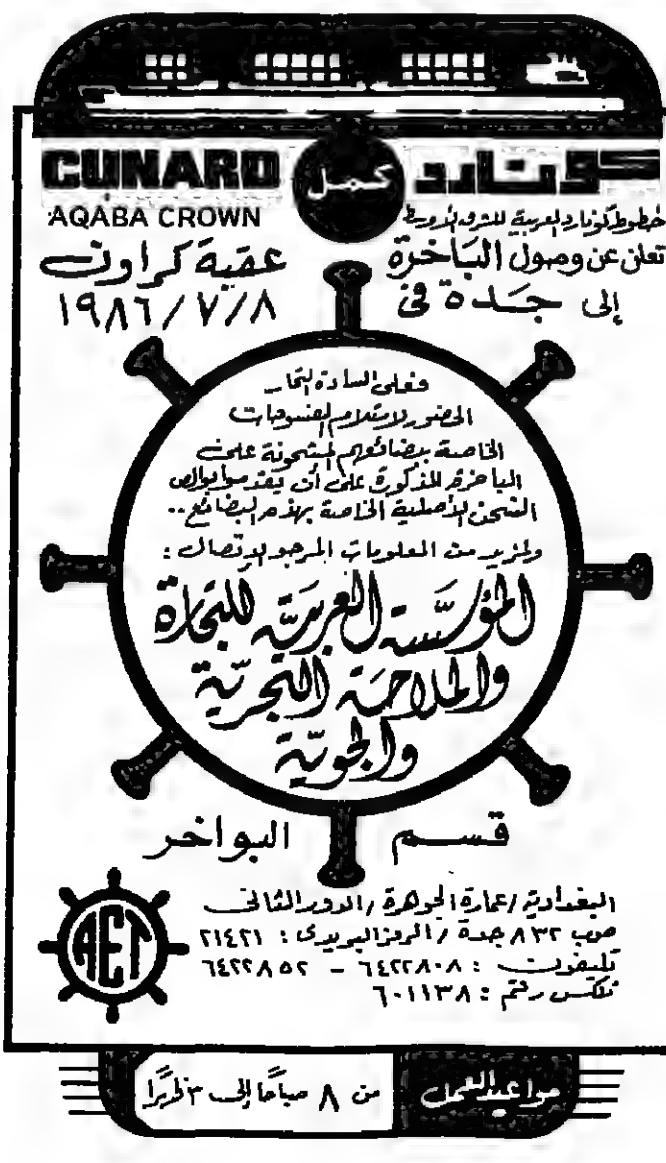 CUNARD كمل كونارد
AQABA CROWN
خطوط كونارد العربية للشرق الأوسط
تعلن عن وصول الباخرة عقبة كراون
إلى جدة في ١٩٨٦/٧/٨
فعلى السادة التجار
الحضور لاستلام الفسوحات
الخاصة ببضائعهم المشحونة على
الباخرة المذكورة على أن يقدموا بوالص
الشحن الأصلية الخاصة بهذه البضائع..
ولمزيد من المعلومات المرجو الإتصال :
المؤسسة العربية للتجارة
والملاحة البحرية
والجوية
قسم البواخر
البغدادية / عمارة الجوهرة / الدور الثاني
صوب ٨٣٢ جدة / الرمز البريدى : ٢١٤٢١
تليفون : ٦٤٢٢٨٠٨ - ٦٤٢٢٨٥٢
تلكس رقم : ٦٠١١٣٨
AET
مواعيد العمل من ٨ صباحاً إلى ٣ ظهراً